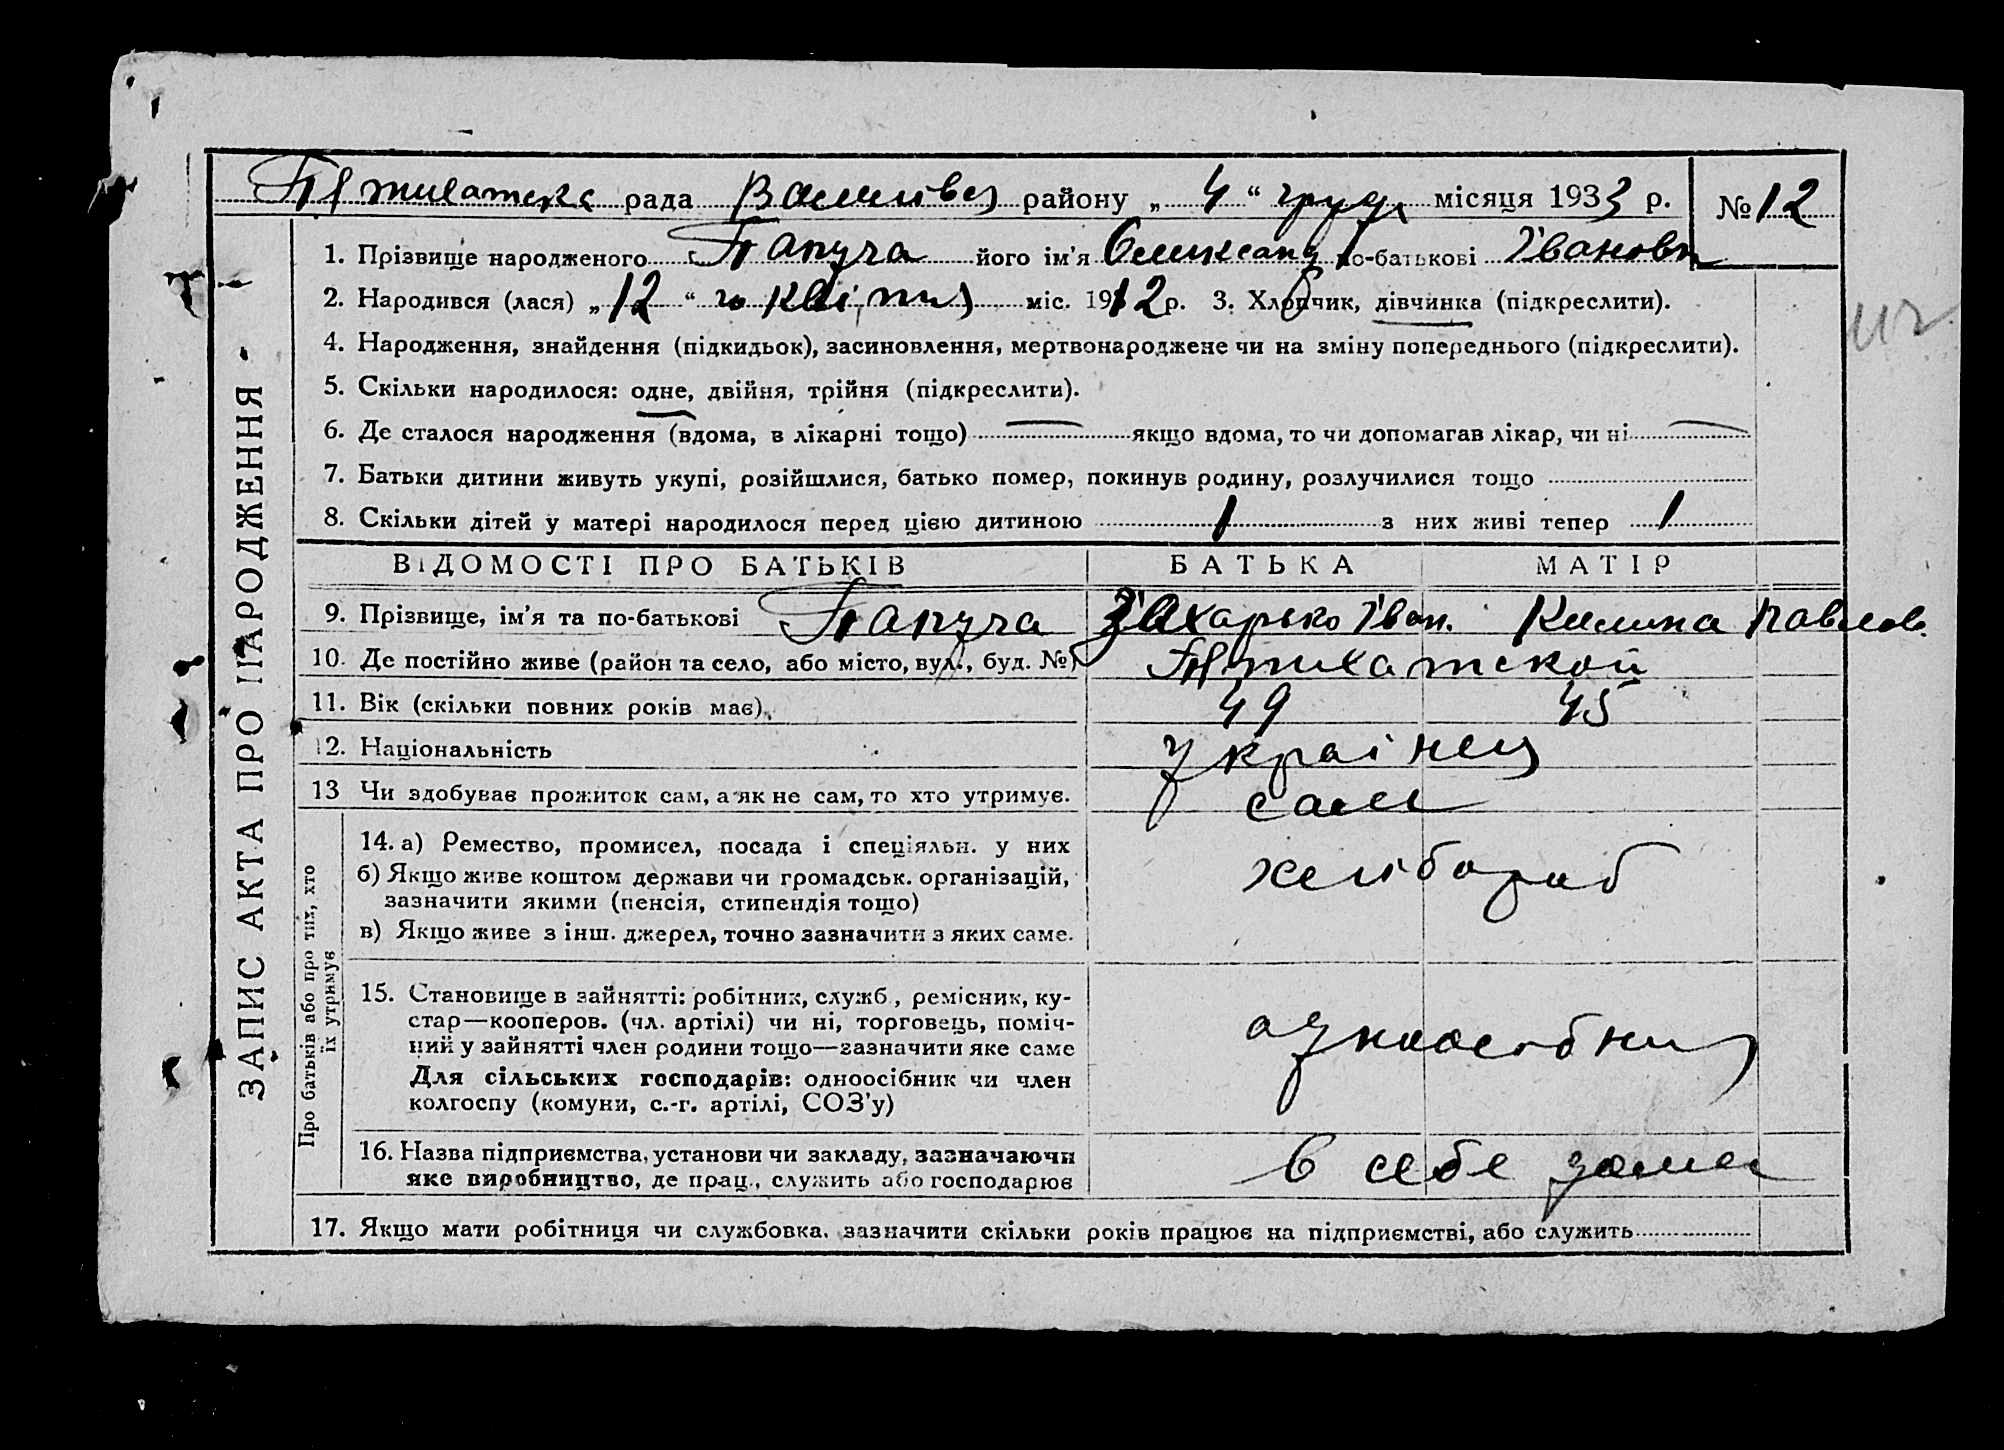 Пятихатска рада Василівс району „ 4 “ груд. місяця 1933 р. № 12
1. Прізвище народженого Папуча його ім'я Олександ по-батькові Іванови
2. Народився (лася) „ 12 “ го квітня міс. 1912 р. 3. Хлопчик, дівчинка (підкреслити).
4. Народження, знайдення (підкидьок), засиновлення, мертвонароджене чи на зміну попереднього (підкреслити).
5. Скільки народилося: одне, двійня, трійня (підкреслити).
6. Де сталося народження (вдома, в лікарні тощо) — якщо вдома, то чи допомагав лікар, чи ні —
7. Батьки дитини живуть укупі, розійшлися, батько помер, покинув родину, розлучилися тощо
8. Скільки дітей у матері народилося перед цією дитиною 1 з них живі тепер 1
ВІДОМОСТІ ПРО БАТЬКІВ БАТЬКА МАТІР
9. Прізвище, ім'я та по-батькові Папуча Захарько Іван. Килина Павлов.
10. Де постійно живе (район та село, або місто, вул., буд. №) Пятихатской
11. Вік (скільки повних років має) 49 45
12. Національність українец
13 Чи здобуває прожиток сам, а як не сам, то хто утримує. сам
Про батьків або про тих, хто їх утримує
14. а) Ремество, промисел, посада і спеціяльн. у них
б) Якщо живе коштом держави чи громадськ. організацій,
зазначити якими (пенсія, стипендія тощо)
хлібороб
в) Якщо живе з інш. джерел, точно зазначити з яких саме.
15. Становище в зайнятті: робітник, служб., ремісник, ку-
стар—кооперов. (чл. артілі) чи ні, торговець, поміч-
ний у зайнятті член родини тощо—зазначити яке саме
одноосібник
Для сільських господарів: одноосібник чи член
колгоспу (комуни, с.-г. артілі, СОЗ'у)
16. Назва підприємства, установи чи закладу, зазначаючи
яке виробництво, де прац., служить або господарює
в себе дома
17. Якщо мати робітниця чи службовка, зазначити скільки років працює на підприємстві, або служить
ЗАПИС АКТА ПРО НАРОДЖЕННЯ